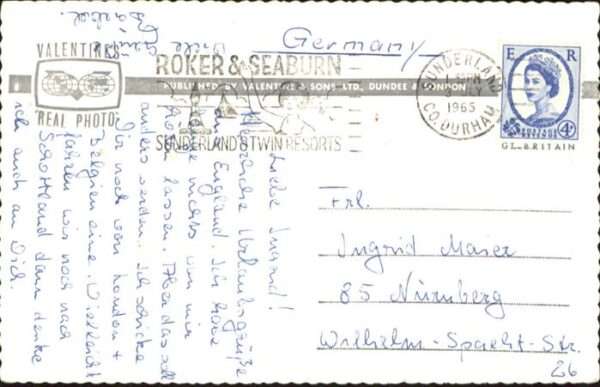 Germany
VALENTINE'S
REAL PHOTO
ROKER & SEABURN
SUNDERLAND'S TWIN RESORTS
PUBLISHED BY VALENTINE & SONS, LTD., DUNDEE & LONDON
SUNDERLAND
1965
CO. DURHAM
E R
POSTAGE
4D
GT. BRITAIN
Frl.
Ingrid Maier
85 Nürnberg
Wilhelm-Spaeth-Str.
26
Liebe Ingrid!
Herzliche Urlaubsgrüße
aus England. Ich habe
nichts von mir
hören lassen. Aber das soll
anders werden. Ich schicke
Dir noch von London +
Belgien eine. Vielleicht
fahren wir noch nach
Schottland dann denke
ich auch an Dich
Viele
Grüße
Bärbel.